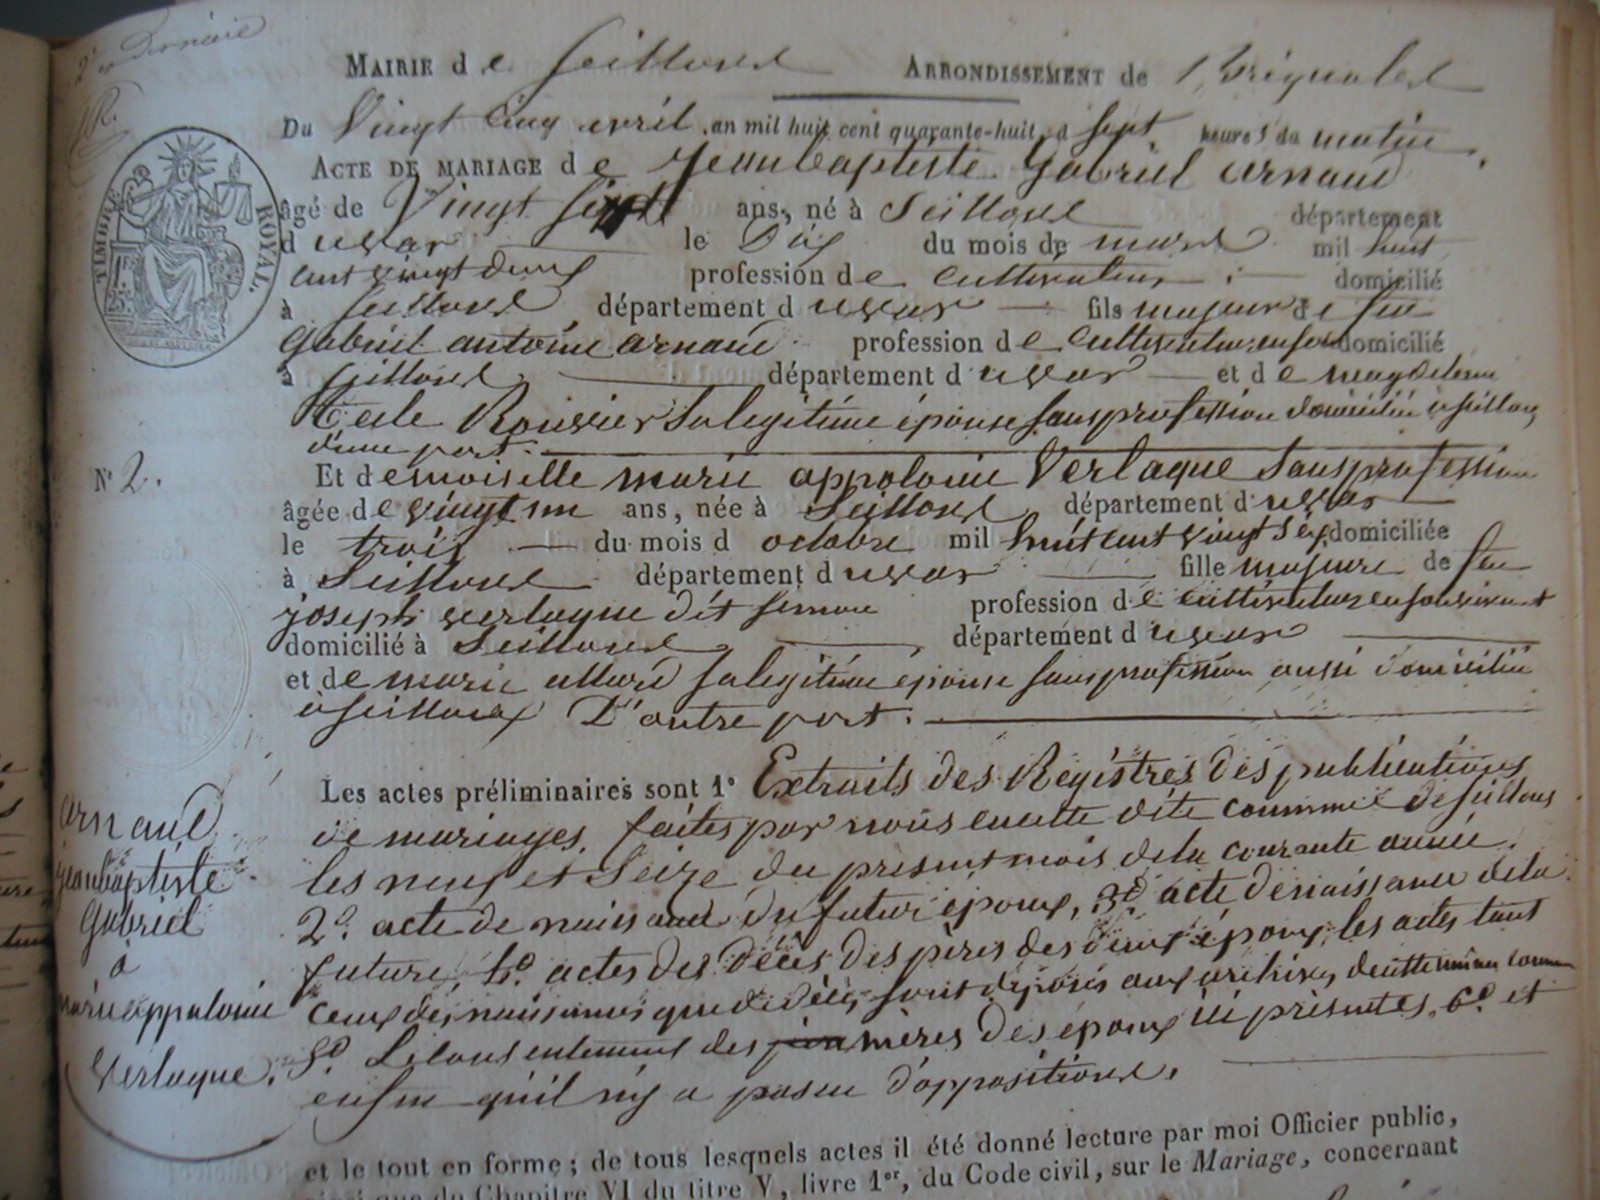 2e et Dernière
MAIRIE de Seillons ARRONDISSEMENT de Brignoles
Du Vingt Cinq avril an mil huit cent quarante-huit, à Sept heures du matin
ACTE DE MARIAGE de Jean baptiste Gabriel arnaud
TIMBRE ROYAL.
25c
âgé de Vingt Six ans, né à Seillons département
d u Var le Dix du mois de mars mil huit
cent vingt deux profession de cultivateur domicilié
à Seillons département d u Var fils majeur de feu
Gabriel antoine arnaud profession de Cultivateur domicilié
à Seillons département d u Var et de magdeleine
Rouvier Sa legitime épouse Sans profession domiciliée à Seillons
d'une part.
N° 2.
Et demoiselle marie appolonie Verlaque Sans profession
âgée de vingt un ans, née à Seillons département d u Var
le trois du mois d octobre mil huit cent vingt Six domiciliée
à Seillons département d u Var fille majeure de feu
joseph verlaque dit profession de cultivateur en son vivant
domicilié à Seillons département d u Var
et de marie allard Sa legitime épouse Sans profession aussi domiciliée
à Seillons D'autre part.
Les actes préliminaires sont 1° Extraits des Registres des publications
de mariages, faites par nous en cette dite commune de Seillons
les neuf et Seize du présent mois de la courante année.
2° acte de naissance du futur époux, 3° acte de naissance de la
future, 4° actes des décès des pères des deux époux, les actes tant
ceux des naissances que de décès sont déposés aux archives de cette commune
5° Le Consentement des mères des époux ici présentes, 6° et
enfin qu'il n'y a pas eu d'oppositions.
arnaud
jean baptiste
Gabriel
à
marie appolonie
Verlaque.
et le tout en forme; de tous lesquels actes il été donné lecture par moi Officier public,
ainsi que du Chapitre VI du titre V, livre 1er, du Code civil, sur le Mariage, concernant